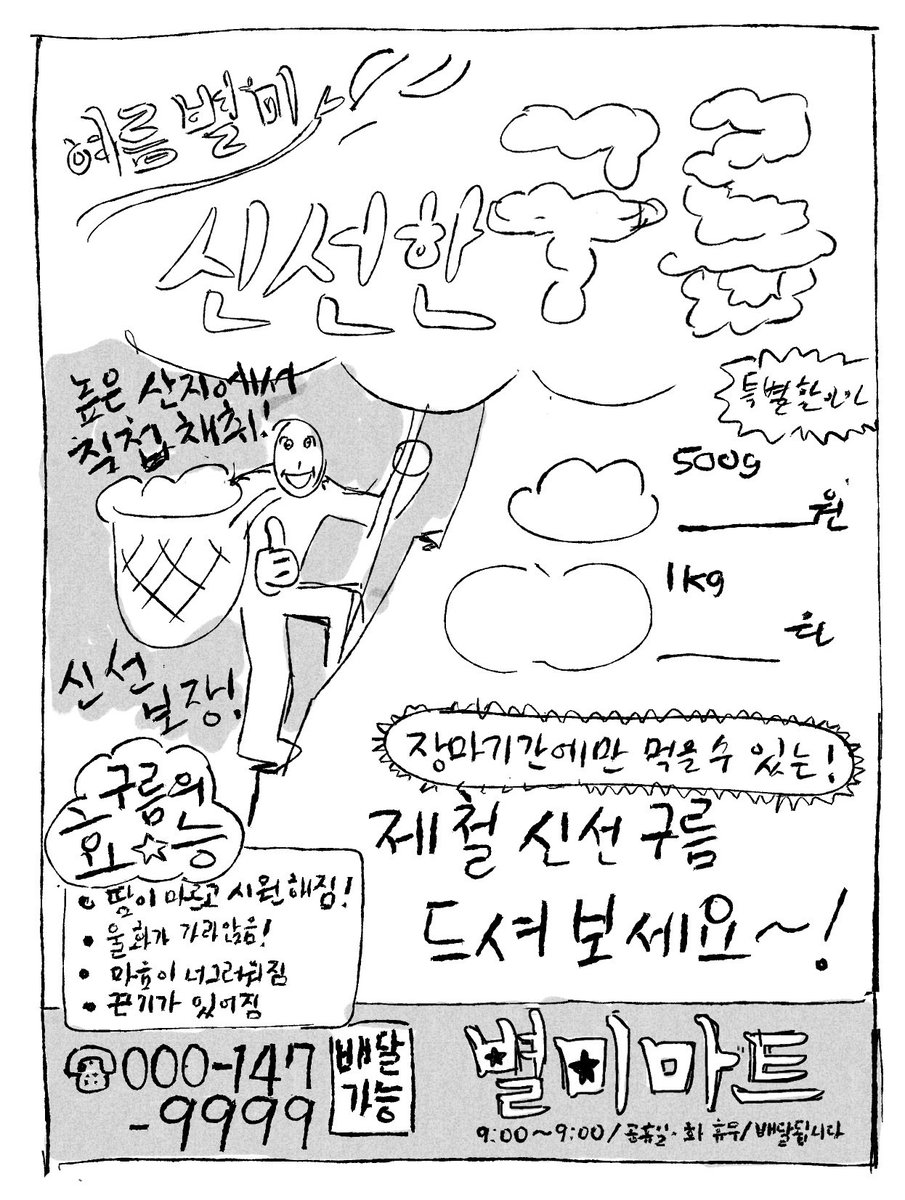 여름 별미
신선한 구름
높은 산지에서
직접 채취!
특별할인가
500g
원
1kg
원
신선
보장!
장마기간에만 먹을 수 있는!
제철 신선 구름
드셔 보세요~!
구름의
효☆능
• 땀이 마르고 시원해짐!
• 울화가 가라앉음!
• 마음이 너그러워짐
• 끈기가 있어짐
☎000-147
-9999
배달
가능
별미마트
9:00~9:00/공휴일·화 휴무/배달됩니다